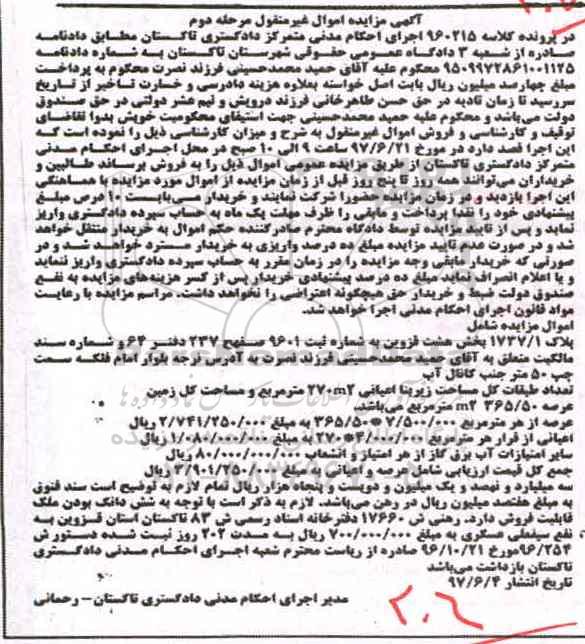 آگهی مزایده اموال غیرمنقول مرحله دوم
در پرونده کلاسه ۹۶۰۲۱۵ اجرای احکام مدنی متمرکز دادگستری تاکستان مطابق دادنامه
صادره از شعبه ۳ دادگاه عمومی حقوقی شهرستان تاکستان به شماره دادنامه
۹۵۰۹۹۷۲۸۶۱۰۰۱۱۲۵ محکوم علیه آقای حمید محمدحسینی فرزند نصرت محکوم به پرداخت
مبلغ چهارصد میلیون ریال بابت اصل خواسته بعلاوه هزینه دادرسی و خسارت تاخیر از تاریخ
سررسید تا زمان تادیه در حق حسن طاهرخانی فرزند درویش و نیم عشر دولتی در حق صندوق
دولت می‌باشد و محکوم علیه حمید محمدحسینی جهت استیفای محکومیت خویش بدوا تقاضای
توقیف و کارشناسی و فروش اموال غیرمنقول به شرح و میزان کارشناسی ذیل را نموده است که
این اجرا قصد دارد در مورخ ۹۷/۶/۲۱ ساعت ۹ الی ۱۰ صبح در محل اجرای احکام مدنی
متمرکز دادگستری تاکستان از طریق مزایده عمومی اموال ذیل را به فروش برساند طالبین و
خریداران می‌توانند همه روز تا پنج روز قبل از زمان مزایده از اموال مورد مزایده با هماهنگی
این اجرا بازدید و در زمان مزایده حضورا شرکت نمایند و خریدار می‌بایست ۱۰ درص مبلغ
پیشنهادی خود را نقدا پرداخت و مابقی را ظرف مهلت یک ماه به حساب سپرده دادگستری واریز
نماید و پس از تایید مزایده توسط دادگاه محترم صادرکننده حکم اموال به خریدار منتقل خواهد
شد و در صورت عدم تایید مزایده مبلغ ده درصد واریزی به خریدار مسترد خواهد شد و در
صورتی که خریدار مابقی وجه مزایده را در زمان مقرر به حساب سپرده دادگستری واریز ننماید
و یا اعلام انصراف نماید مبلغ ده درصد پیشنهادی خریدار پس از کسر هزینه‌های مزایده به نفع
صندوق دولت ضبط و خریدار حق هیچگونه اعتراضی را نخواهد داشت. مراسم مزایده با رعایت
مواد قانون اجرای احکام مدنی اجرا خواهد شد.
اموال مزایده شامل
پلاک ۱۷۳۷/۱ بخش هشت قزوین به شماره ثبت ۹۶۰۱ صفحه ۲۳۷ دفتر ۶۴ و شماره سند
مالکیت متعلق به آقای حمید محمدحسینی فرزند نصرت به آدرس نرجه بلوار امام فلکه سمت
چپ ۵۰ متر جنب کانال آب
تعداد طبقات کل مساحت زیربنا اعیانی ۲۷۰m2 مترمربع و مساحت کل زمین
عرصه ۳۶۵/۵۰ m2 مترمربع می‌باشد.
عرصه از هر مترمربع ۷/۵۰۰/۰۰۰*۳۶۵/۵۰ به مبلغ ۲/۷۴۱/۲۵۰/۰۰۰ ریال
اعیانی از قرار هر مترمربع ۴/۰۰۰/۰۰۰*۲۷۰ به مبلغ ۱/۰۸۰/۰۰۰/۰۰۰ ریال
سایر امتیازات آب برق گاز از هر امتیاز و انشعاب ۸۰/۰۰۰/۰۰۰ ریال
جمع کل قیمت ارزیابی شامل عرصه و اعیانی به مبلغ ۳/۹۰۱/۲۵۰/۰۰۰ ریال
سه میلیارد و نهصد و یک میلیون و دویست و پنجاه هزار ریال تمام لازم به توضیح است سند فوق
به مبلغ هفتصد میلیون ریال در رهن می‌باشد. لازم به ذکر است با توجه به شش دانک بودن ملک
قابلیت فروش دارد. رهنی ش ۱۷۶۶۰ دفترخانه اسناد رسمی ش ۸۳ تاکستان استان قزوین به
نفع سیفعلی عسکری به مبلغ ۷۰۰/۰۰۰/۰۰۰ ریال به مدت ۲۰۲ روز ثبت شده دستور ش
۹۶/۲۵۴مورخ ۹۶/۱۰/۲۱ صادره از ریاست محترم شعبه اجرای احکام مدنی دادگستری
تاکستان بازداشت می‌باشد
تاریخ انتشار ۹۷/۶/۴
مدیر اجرای احکام مدنی دادگستری تاکستان- رحمانی